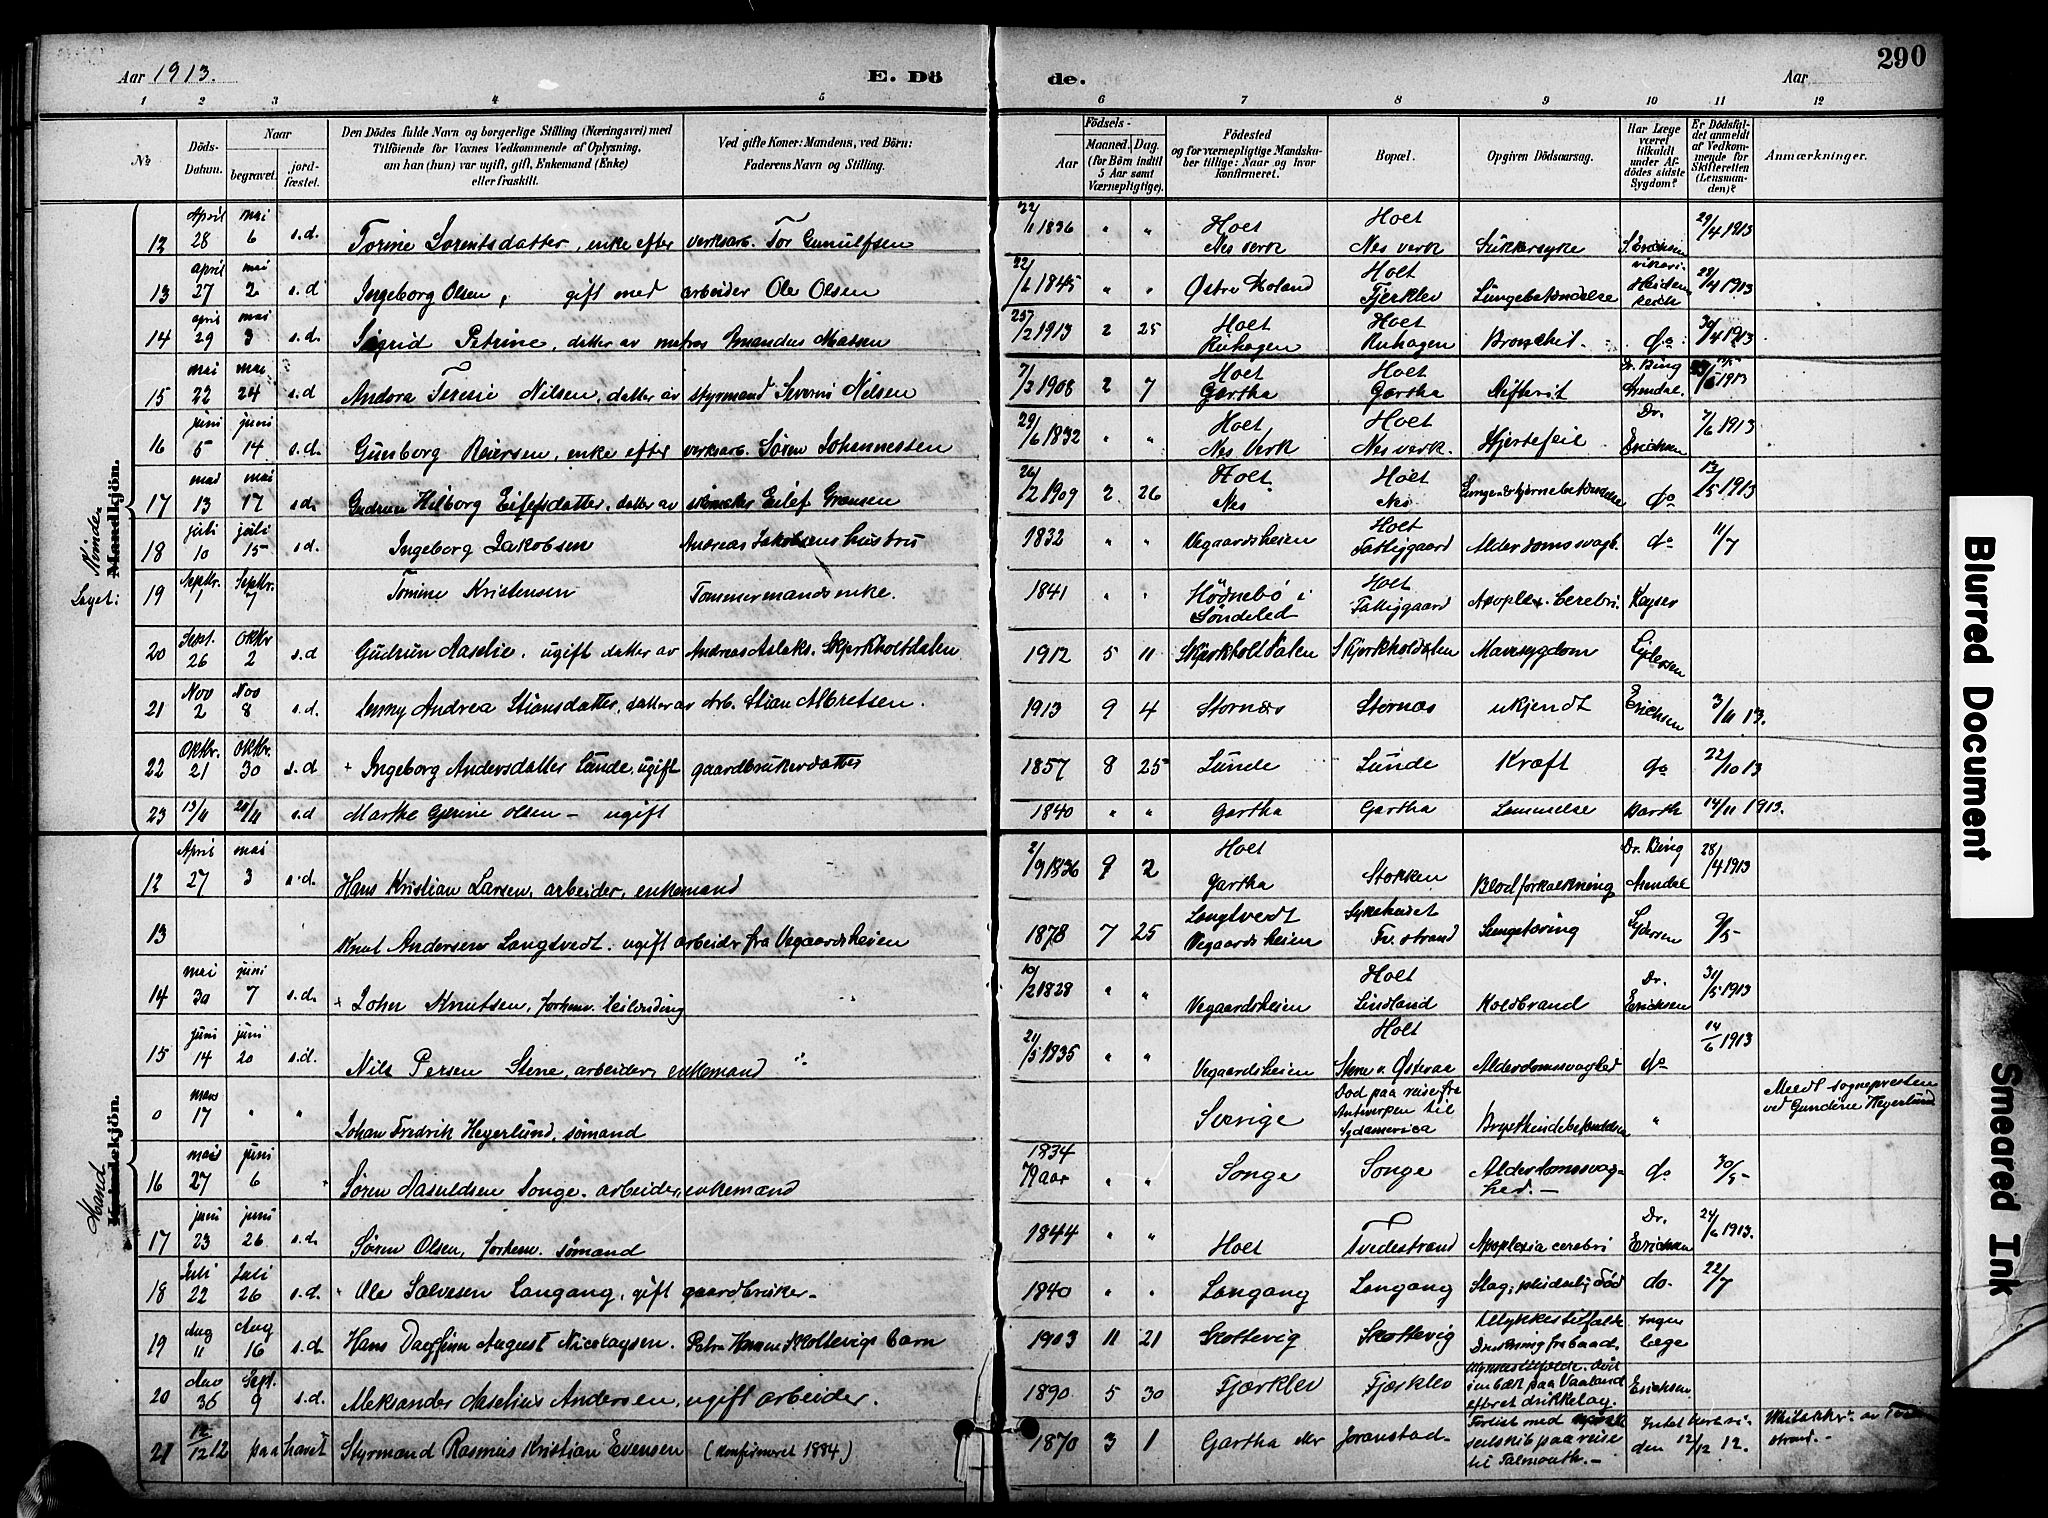 Aar 1913.
E. Dö
de.
Aar
290
1 2 3 4 5 6 7 8 9 10 11 12
No
Döds-
Datum.
Naar
begravet.
jord-
fæstet.
Den Dödes fulde Navn og borgerlige Stilling (Næringsvei) med
Tilföiende for Voxnes Vedkommende af Oplysning,
om han (hun) var ugift, gift, Enkemand (Enke)
eller fraskilt.
Ved gifte Koner: Mandens, ved Börn:
Faderens Navn og Stilling.
Födsels-
Aar
Maaned. Dag.
(for Börn indtil
5 Aar samt
Værnepligtige).
Födested
og for værnepligtige Mandska-
ber tillige: Naar og hvor
konfirmeret.
Bopæl.
Opgiven Dödsaarsag.
Har Læge
været
tilkaldt
under Af-
dödes sidste
Sygdom?
Er Dödsfal-
det anmeldt
af Vedkom-
mende for
Skifteretten
(Lensman-
den)?
Anmærkninger.
Laget: Kvinder
Mandkjön.
12 April 28 mai 6 s.d. Torine Lorentsdatter, enke efter verksarb. Tor Gunulfsen 1836 " " Holt Nes verk Holt Nes verk Sukkersyke 29/4 1913
13 april 27 mai 2 s.d Ingeborg Olsen, gift med arbeider Ole Olsen 22/6 1845 " " Østre Moland Holt Fjerklev Lungebetændelse 28/4 1913
14 april 29 mai 3 s.d. Sigrid Petrine, datter av matros Amandus Madsen 1913 2 25 Holt Ruhagen Holt Ruhagen Bronchit do 30/4 1913
15 mai 22 mai 24 s.d Andora Teresie Nilsen, datter av styrmand Severin Nilsen 1908 2 7 Holt Gartha Holt Gartha Difterit Dr. Bing Arendal 1913
16 juni 5 juni 14 s.d. Gunborg Reiersen, enke efter verksarb. Sören Johannessen 29/6 1832 " " Holt Nes Verk Holt Nes verk. Hjertefeil Dr. Erichsen 7/6 1913
17 mai 13 mai 17 s.d. Gudrun Hilborg Eilefsdatter, datter av Eilef Grensen 1909 2 26 Holt Nes Holt Nes do 13/5 1913
18 juli 10 juli 15 s.d. Ingeborg Jakobsen Andreas Jakobsens hustru 1832 " " Vegaardsheien Holt Fattiggaard Alderdomssvagh. do 11/7
19 Septbr. 1 Septbr. 7 Tomine Kristensen Tømmermandsenke. 1841 " " Hödnebö i Söndeled Holt Fattiggaard Apoplex. Cerebri. Kayser
20 Sept. 26 Oktbr 2 s.d Gudrun Aaselie, ugift datter av Andreas Aslaks. Skjerkholtdalen 1912 5 11 Skjerkholtdalen Skjerkholdalen Mavesygdom
21 Nov 2 Nov 8 s.d. Jenny Andrea Stiansdatter, datter av Arb. Stian Albretsen. 1913 9 4 Stornæs Stornæs ukjendt Erichsen 3/11 13.
22 Oktbr. 21 Oktbr. 30 s.d + Ingeborg Andersdatter Lunde, ugift gaardbrukerdatter 1857 8 25 Lunde Lunde Kræft do 22/10 13
23 13/11 20/11 s.d Marthe Gjerine Olsen - ugift 1840 " " Gartha Gartha Lammelse Barth 14/11 1913.
Mand
Kvindekjön.
12 April 27 mai 3 s.d. Hans Kristian Larsen, arbeider, enkemand 2/9 1836 9 2 Holt Gartha Stokken Blodforkalkning Dr. Bing Arendal 28/4 1913
13 Knut Andersen Langtvedt, ugift arbeider fra Vegaardsheien 1878 7 25 Langtvedt Vegaardsheien Sykehuset Tv.strand Lungetæring 9/5
14 mai 30 juni 7 s.d. + John Knutsen, forhenv. leilending 10/2 1828 " " Vegaardsheien Holt Lindland Koldbrand Dr. Erichsen 31/5 1913
15 juni 14 juni 20 s.d. Nils Persen Stene, arbeider, enkemand " 21/5 1835 " " Vegaardsheien Holt Stene v Østeraa Alderdomssvaghed do 14/6 1913
0 mars 17 " " Johan Fredrik Hegerlund, sømand Sverige Död paa reise fra Antwerpen til Sydamerica Brysthindebetændelse " Meldt sognepresten ved Gundine Hegerlund
16 mai 27 juni 6 " Sören Aasuldsen Songe, arbeider, enkemand 1834 79 aar " " Songe Songe Alderdomssvaghed. - do 30/5
17 juni 23 juni 26 s.d. Sören Olsen, forhenv. sømand 1844 " " Holt Tvedestrand Apoplexia cerebri Dr. Erichsen 24/6 1913.
18 Juli 22 Juli 26 s.d. " Ole Salvesen Langang, gift gaardbruker - 1840 " " Langang Langang Slag, pludselig Död do. 22/7
19 Aug 11 Aug 16 s.d. Hans Dagfinn August Nicolaysen. Petra Hansen Skottevigs barn 1903 11 21 Skottevig Skottevig Ulykkestilfælde Drukning fra baad. Ingen læge
20 36 Sept. 9 s.d. Aleksander Aaselius Andersen, ugift arbeider. 1890 5 30 Fjærklev Fjærklev Ulykkestilfælde, död i en bæk paa Vaaland efter et drikkelag. Erichsen
21 12/12 12 paa havet Styrmand Rasmus Kristian Evensen (konfirmeret 1884) 1870 3 1 Gartha Joranstad. Forlist med seilskib paa reise til Falmouth. - den 12/12 12. av strand. -
Blurred Document
Smeared Ink